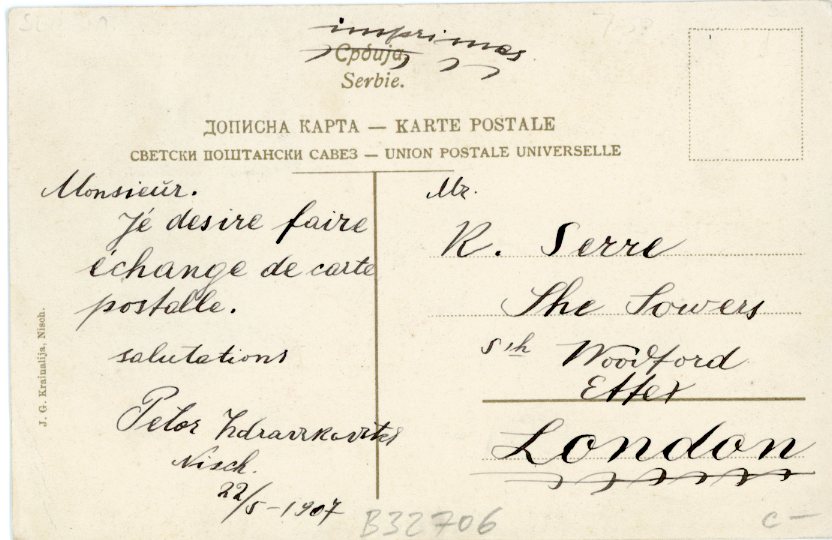 imprimes
Србија
Serbie.
ДОПИСНА КАРТА — KARTE POSTALE
СВЕТСКИ ПОШТАНСКИ САВЕЗ — UNION POSTALE UNIVERSELLE
Monsieur.
Jé desire faire
échange de carte
postalle.
salutations
Petar Zdravkovitch
Nisch.
22/5-1907
Mr.
R. Serre
The Towers
Sth Woodford
Essex
London
J. G. Kraiualija, Nisch.
B32706
c-